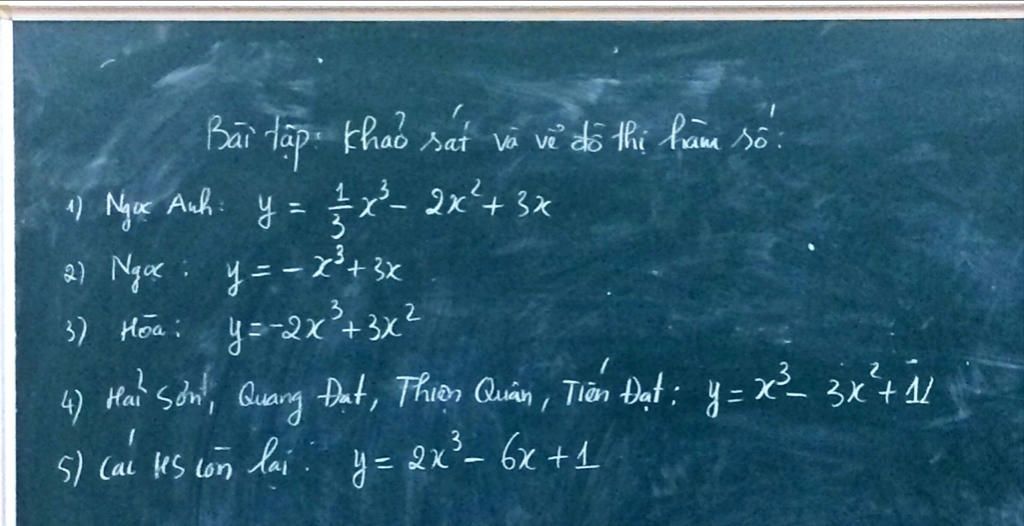 Bài tập: Khảo sát và vẽ đồ thị hàm số:
1) Ngọc Anh: y = 1/3 x³ - 2x² + 3x
2) Ngọc: y = - x³ + 3x
3) Hòa: y = -2x³ + 3x²
4) Hải Sơn, Quang Đạt, Thiện Quân, Tiến Đạt: y = x³ - 3x² +
5) Các HS còn lại: y = 2x³ - 6x + 1